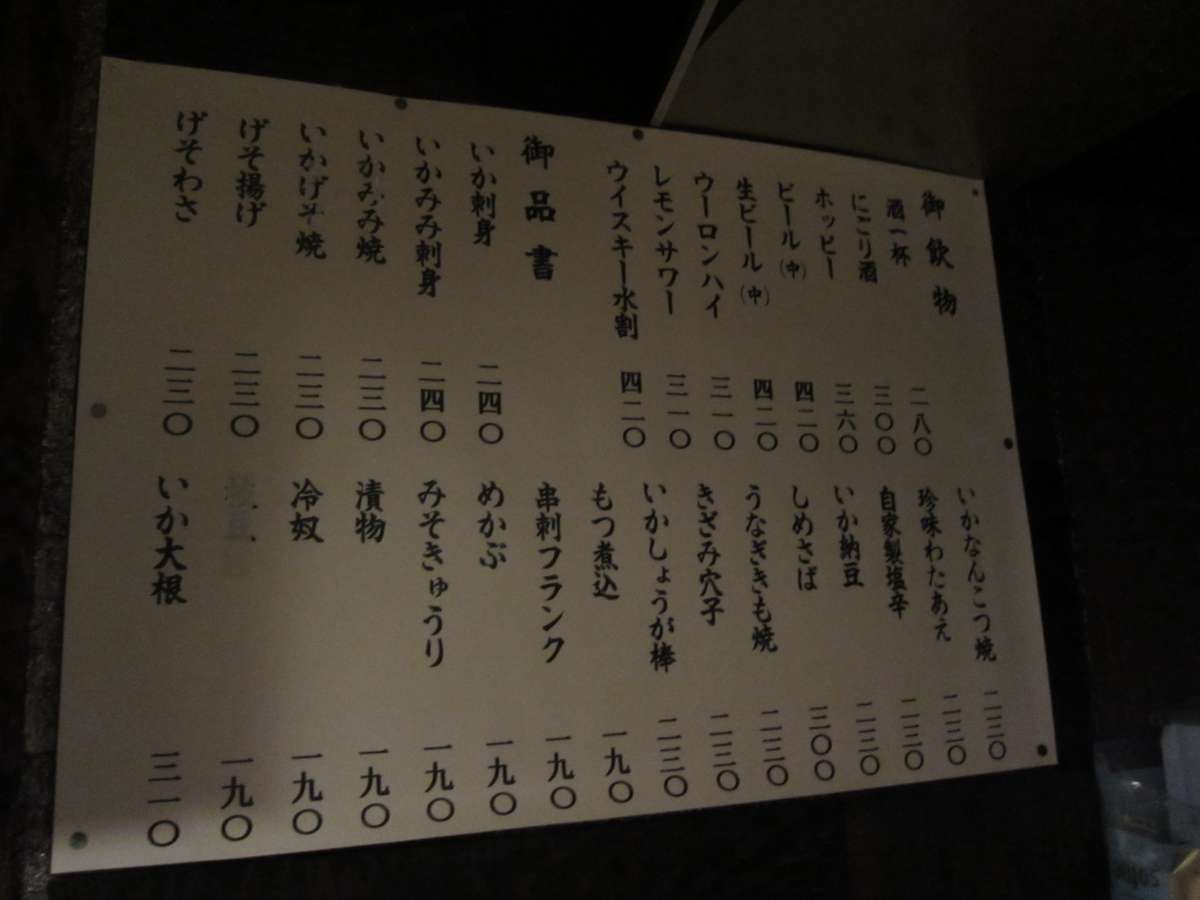 御飲物
酒一杯 二八〇
にごり酒 三〇〇
ホッピー 三六〇
ビール(中) 四二〇
生ビール(中) 四二〇
ウーロンハイ 三一〇
レモンサワー 三一〇
ウイスキー水割 四二〇
御品書
いか刺身 二四〇
いかみみ刺身 二四〇
いかみみ焼 二三〇
いかげそ焼 二三〇
げそ揚げ 二三〇
げそわさ 二三〇
いかなんこつ焼 二三〇
珍味わたあえ 二三〇
自家製塩辛 二三〇
いか納豆 二三〇
しめさば 三〇〇
うなぎきも焼 二三〇
きざみ穴子 二三〇
いかしょうが棒 二三〇
もつ煮込 一九〇
串刺フランク 一九〇
めかぶ 一九〇
みそきゅうり 一九〇
漬物 一九〇
冷奴 一九〇
枝豆 一九〇
いか大根 三一〇